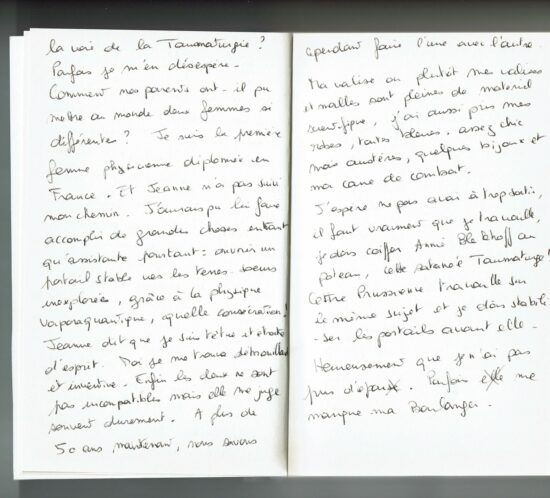 la voie de la Taumaturgie ?
Parfois je m'en désespère.
Comment nos parents ont-il pu
mettre au monde deux femmes si
différentes ? Je suis la première
femme physicienne diplômée en
France. Et Jeanne n'a pas suivi
mon chemin. J'aurais pu lui faire
accomplir de grandes choses en tant
qu'assistante pourtant : ouvrir un
portail stable vers les terres soeurs
inexplorées, grâce à la physique
vaporaquantique, quelle consécration !
Jeanne dit que je suis têtue et étroite
d'esprit. Moi je me trouve débrouillarde
et inventive. Enfin les deux ne sont
pas incompatibles mais elle me juge
souvent durement. A plus de
50 ans maintenant, nous savons
cependant faire l'une avec l'autre.
Ma valise ou plutôt mes valises
et malles sont pleines de matériel
scientifique, j'ai aussi pris mes
robes, toutes bleues, assez chic
mais austères, quelques bijoux et
ma cane de combat.
J'espère ne pas avoir à trop sortir,
il faut vraiment que je travaille,
je dois coiffer Annie au
poteau, cette satanée Taumaturge !
Cette Prussienne travaille sur
le même sujet et je dois stabili
-ser les portails avant elle.
Heureusement que je n'ai pas
pris d'. Parfois elle me
manque ma Boulanger.